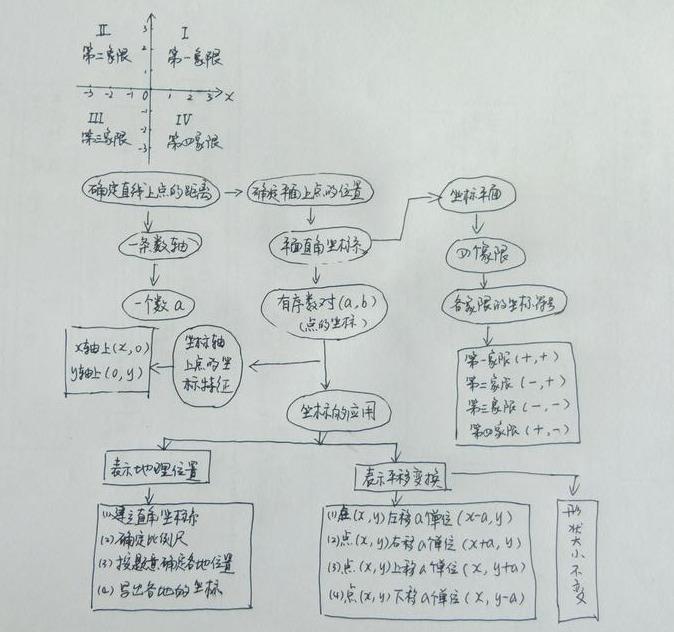 II
I
第二象限
第一象限
3
2
1
-3 -2 -1 0 1 2 3 x
-1
-2
-3
III
IV
第三象限
第四象限
确定直线上点的距离
确定平面上点的位置
坐标平面
一条数轴
平面直角坐标系
四个象限
一个数a
有序数对(a,b)
(点的坐标)
各象限的坐标符号
x轴上(x,0)
y轴上(0,y)
坐标轴
上点的坐
标特征
第一象限(+,+)
第二象限(-,+)
第三象限(-,-)
第四象限(+,-)
坐标的应用
表示地理位置
表示平移变换
形状大小不变
(1)建立直角坐标标
(2)确定比例尺
(3)按题意确定各地位置
(4)写出各地的坐标
(1)点(x,y)左移a个单位(x-a,y)
(2)点(x,y)右移a个单位(x+a,y)
(3)点(x,y)上移a个单位(x,y+a)
(4)点(x,y)下移a个单位(x,y-a)